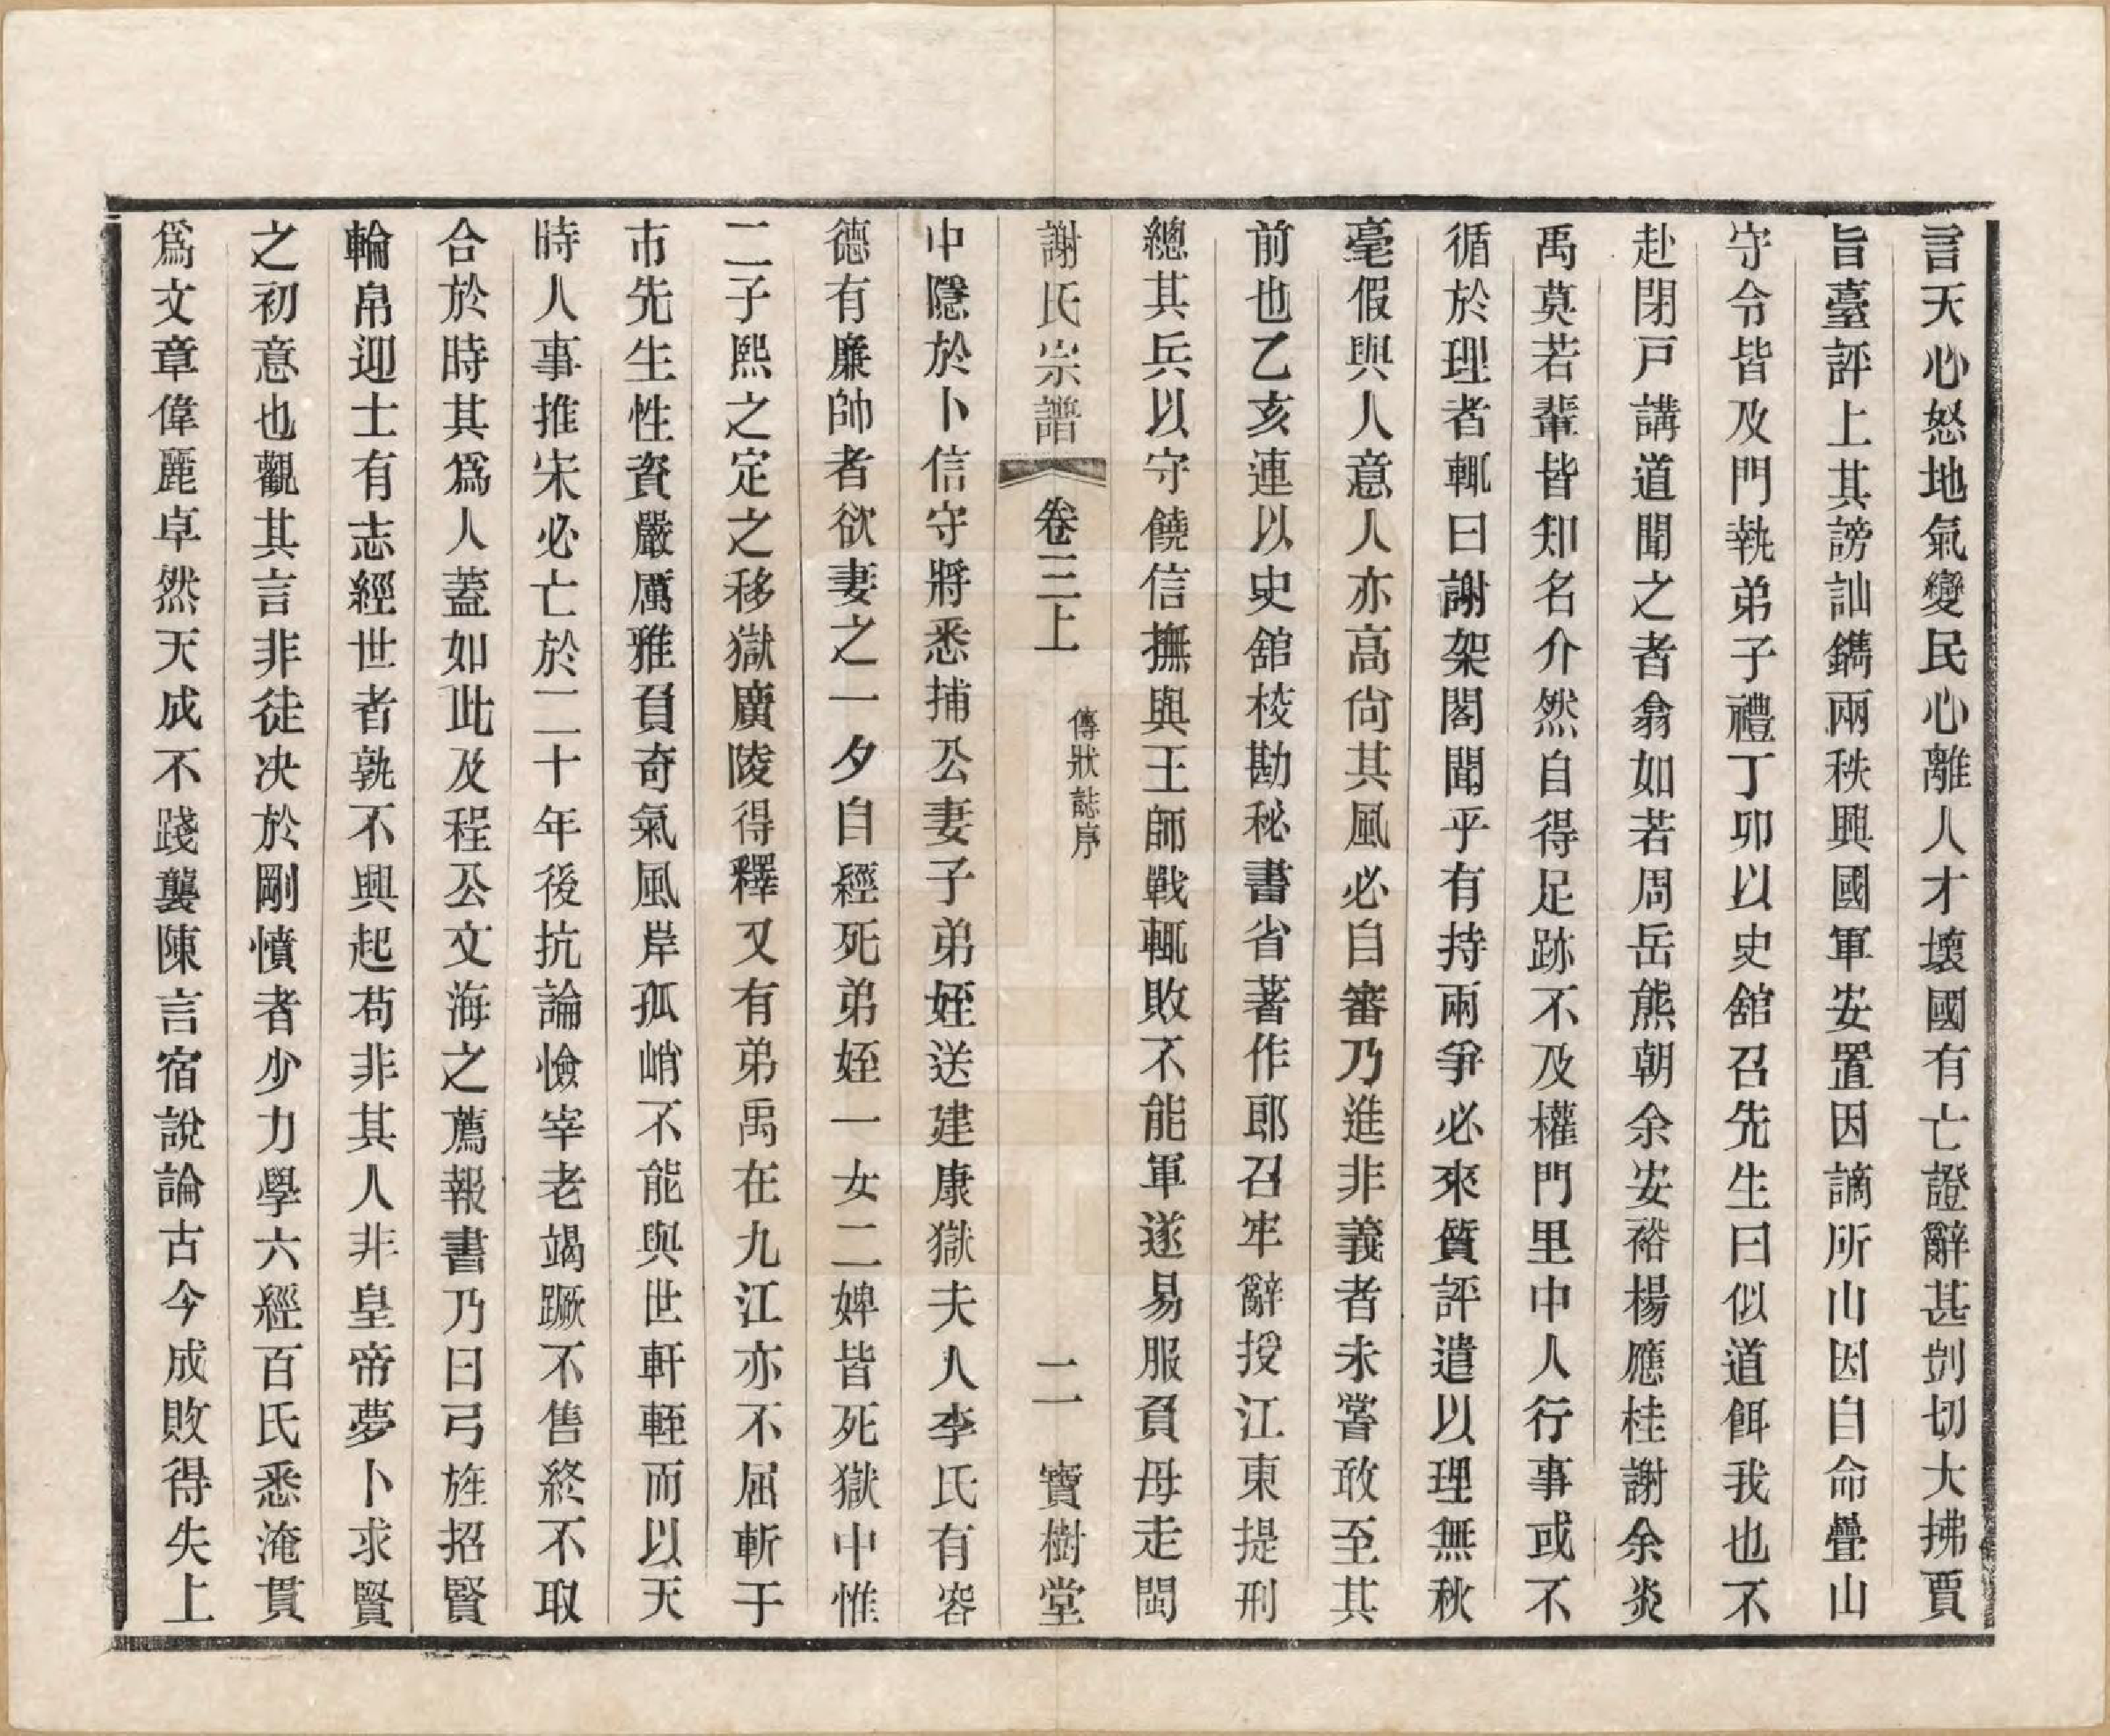 言天心怒地氣變民心離人才壞國有亡證辭甚剴切大拂賈
旨臺評上其謗訕鐫兩秩興國軍安置因謫所山因自命疊山
守令皆及門執弟子禮丁卯以史舘召先生曰似道餌我也不
赴閉戸講道聞之者翕如若周岳熊朝余安裕楊應桂謝余炎
禹莫若輩皆知名介然自得足跡不及權門里中人行事或不
循於理者輒曰謝架閣聞乎有持兩爭必來質評遣以理無秋
毫假與人意人亦高尙其風必自審乃進非義者未嘗敢至其
前也乙亥連以史舘校勘秘書省著作郎召牢辭授江東提刑
總其兵以守饒信撫與王師戰輒敗不能軍遂易服負母走閩
謝氏宗譜 卷三上 傳狀誌序 二 寶樹堂
中隱於卜信守將悉捕公妻子弟姪送建康獄夫人李氏有容
德有廉帥者欲妻之一夕自經死弟姪一女二婢皆死獄中惟
二子熙之定之移獄廣陵得釋又有弟禹在九江亦不屈斬于
市先生性資嚴厲雅負奇氣風岸孤峭不能與世軒輊而以天
時人事推宋必亡於二十年後抗論憸宰老竭蹶不售終不取
合於時其爲人蓋如此及程公文海之薦報書乃曰弓旌招賢
輪帛迎士有志經世者孰不興起苟非其人非皇帝夢卜求賢
之初意也觀其言非徒决於剛憤者少力學六經百氏悉淹貫
爲文章偉麗卓然天成不踐襲陳言宿說論古今成敗得失上